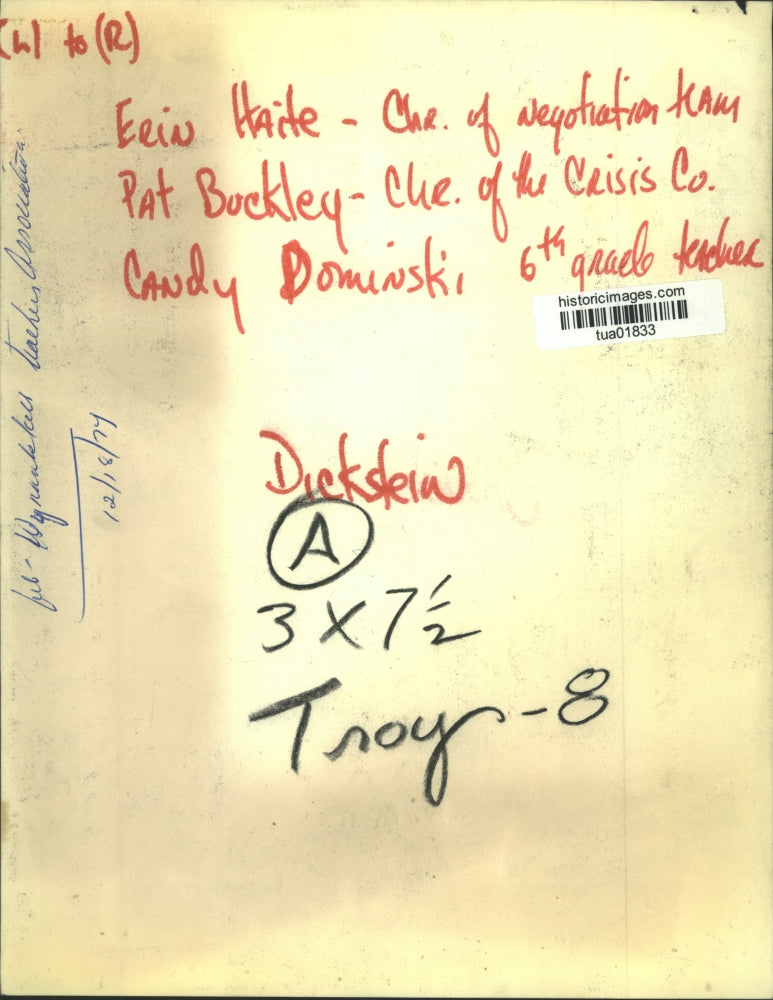 (L) to (R)
Erin Haite - Chr. of negotiation team
Pat Buckley - Chr. of the Crisis Co.
Candy Dominski 6th grade teacher
historicimages.com
tua01833
Dickstein
A
3 X 7 1/2
Troy - 8
Wynantskill Teachers Association
12/18/74